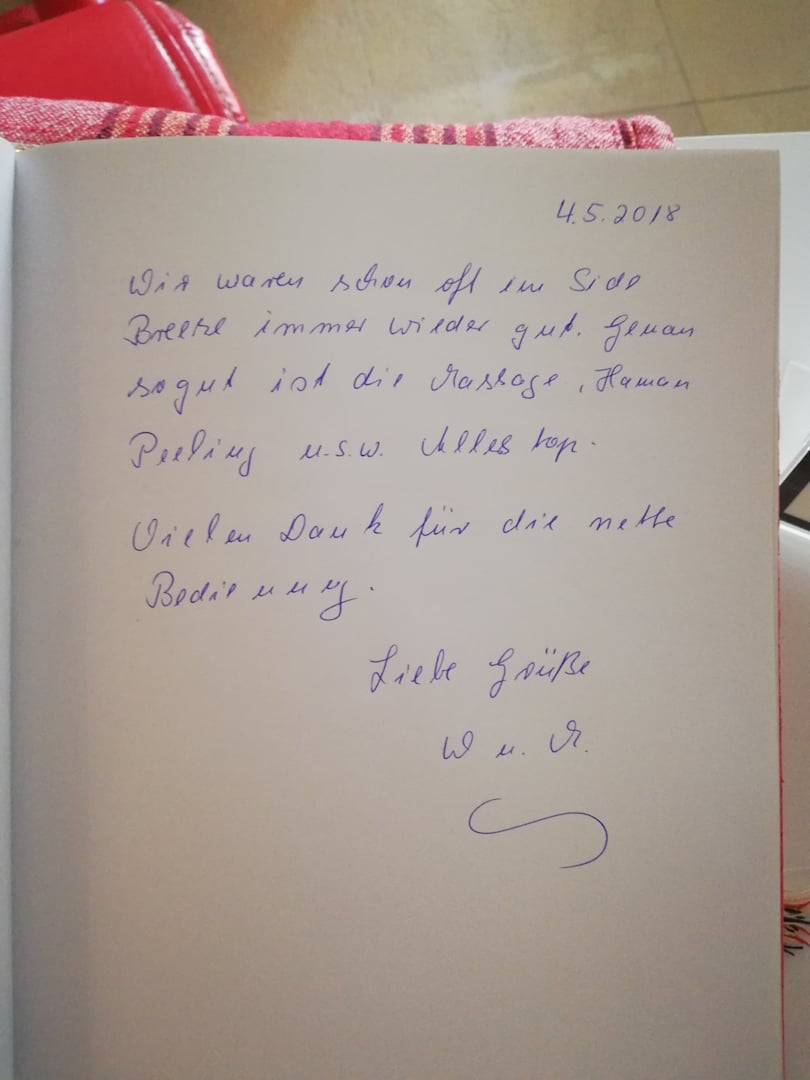 4.5.2018
Wir waren schon oft im Side
Breeze immer wieder gut. Genau
sogut ist die Massage, Haman
Peeling u.s.w. Alles top.
Vielen Dank für die nette
Bedienung.
Liebe Grüße
W u. A.